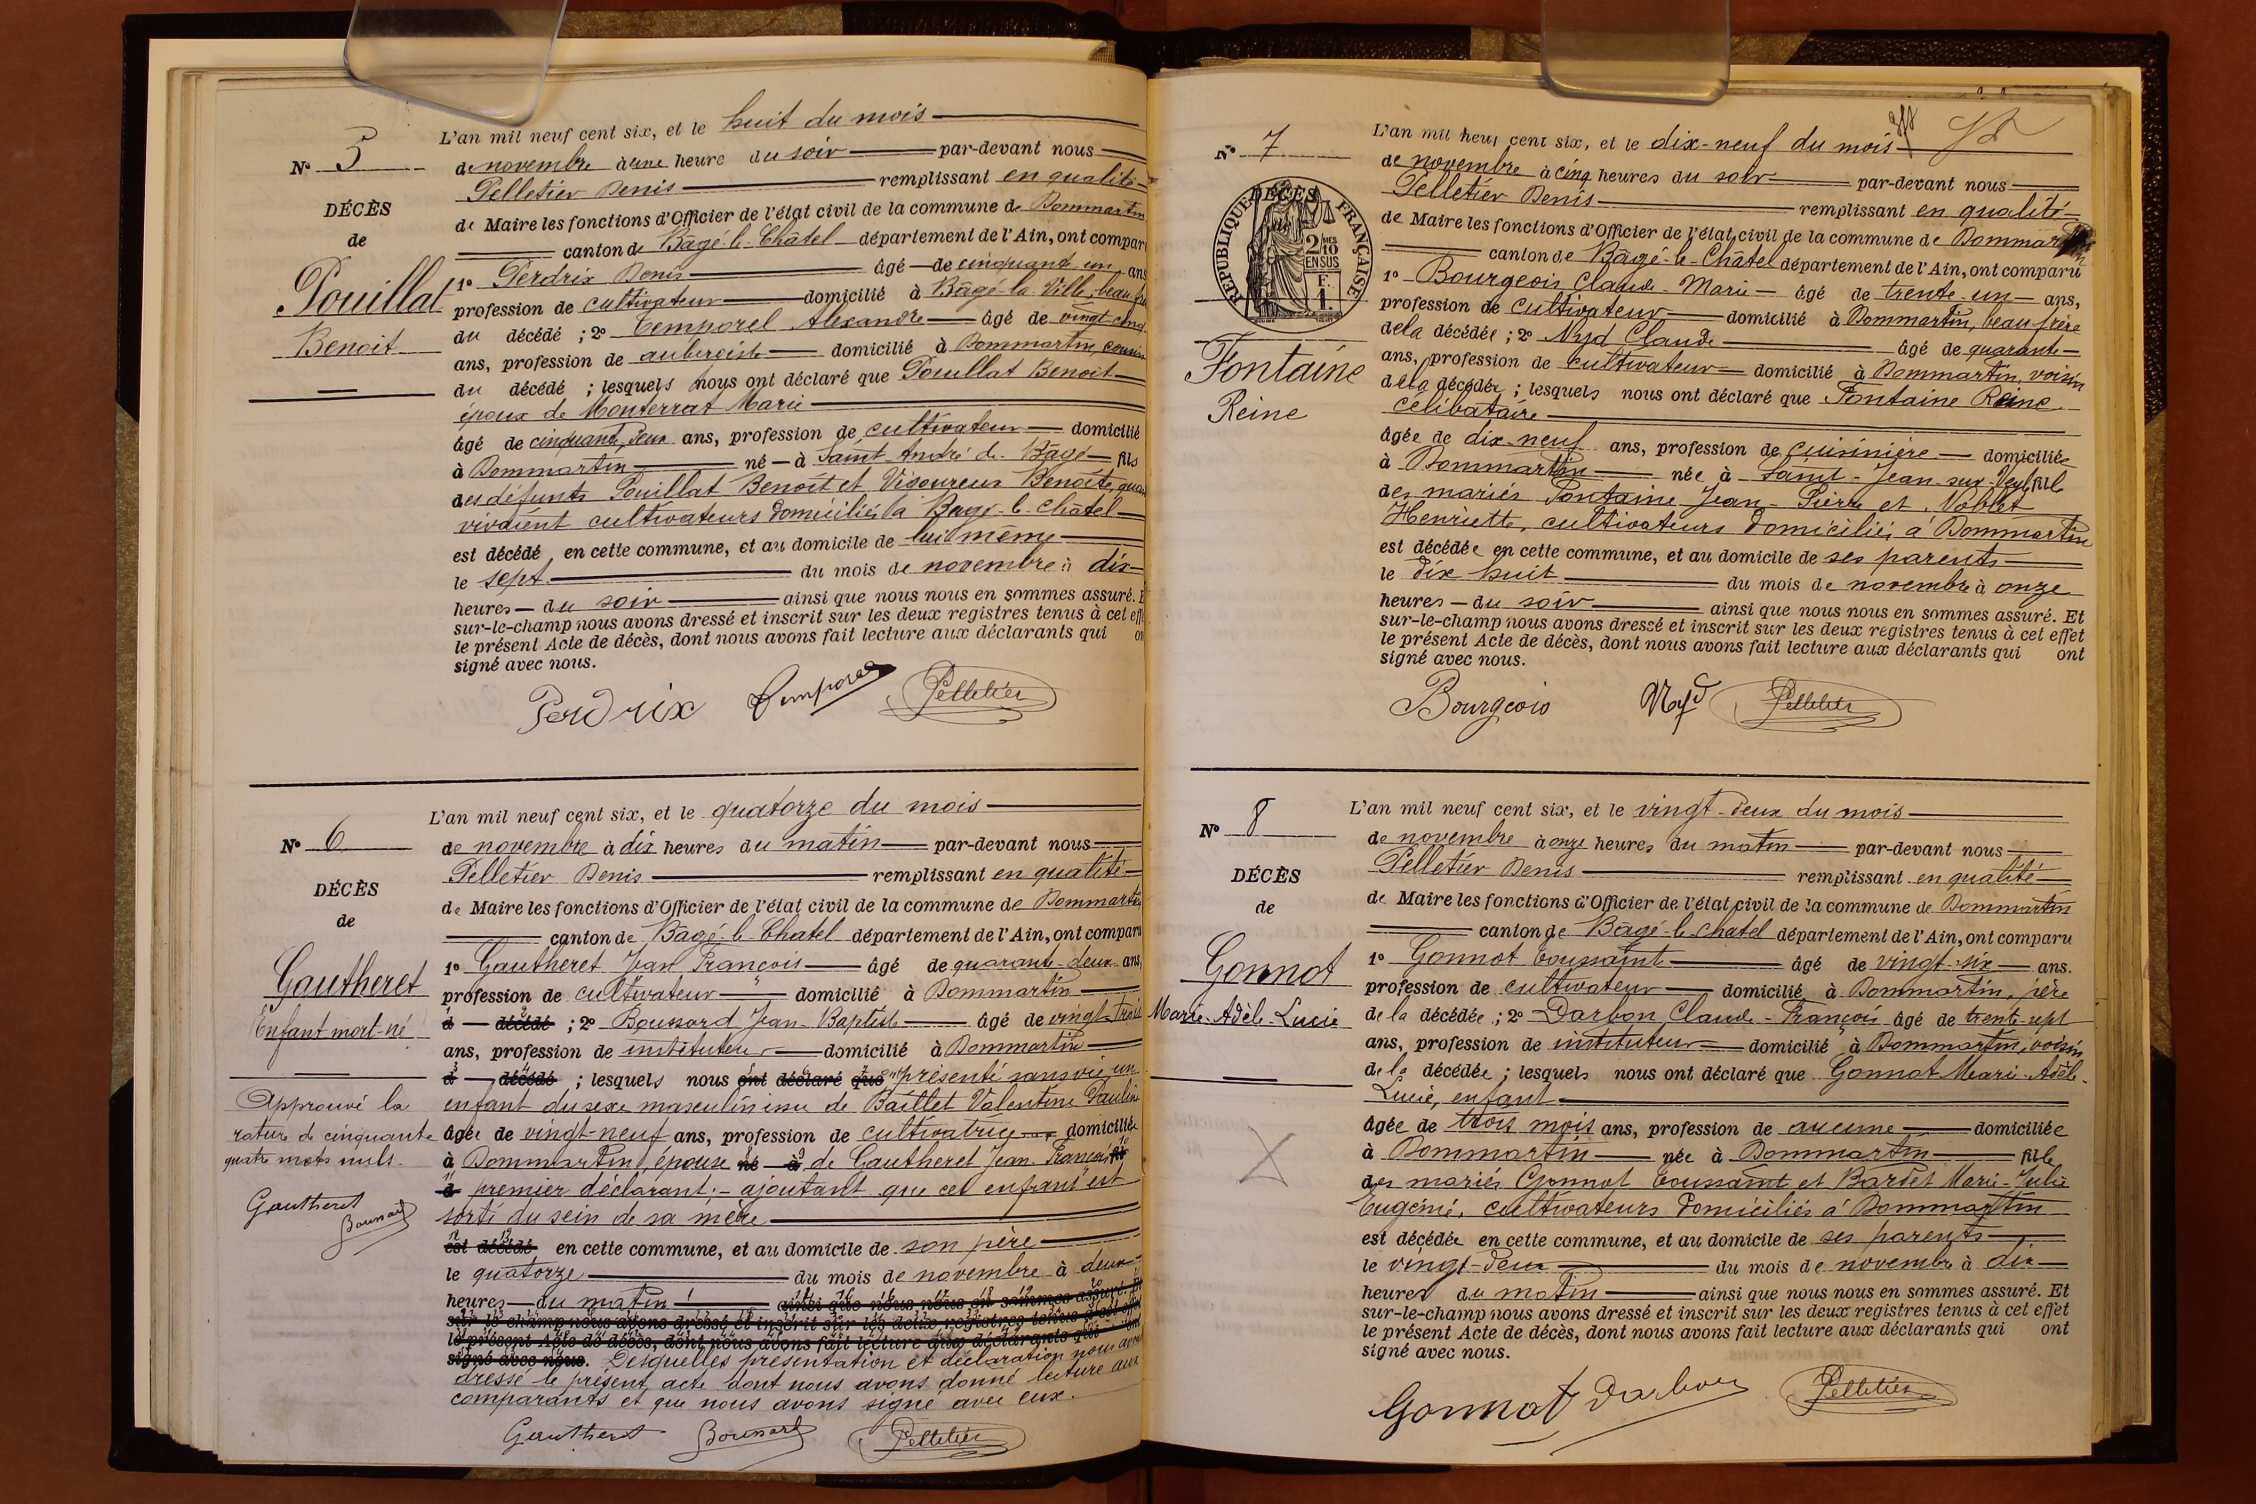 N° 5
DÉCÈS
de
Pouillat
Benoit
L'an mil neuf cent six, et le huit du mois
de novembre à une heure du soir par-devant nous
Pelletier Denis remplissant en qualité
de Maire les fonctions d'Officier de l'état civil de la commune de Dommartin
canton de Bâgé-le-Châtel département de l'Ain, ont comparu
1° Perdrix Denis âgé de cinquante un ans
profession de cultivateur domicilié à Bâgé-la-Ville, beau-frère
du décédé ; 2° Temporel Alexandre âgé de vingt cinq
ans, profession de aubergiste domicilié à Dommartin, cousin
du décédé ; lesquels nous ont déclaré que Pouillat Benoit
époux de Monterrat Marie
âgé de cinquante deux ans, profession de cultivateur domicilié
à Dommartin né à Saint-André-de-Bâgé fils
des défunts Pouillat Benoît et Vigoureux Benoîte, quand
vivaient cultivateurs domiciliés à Bâgé-le-Châtel
est décédé en cette commune, et au domicile de lui même
le sept du mois de novembre à dix
heures du soir ainsi que nous nous en sommes assuré. E
sur-le-champ nous avons dressé et inscrit sur les deux registres tenus à cet eff
le présent Acte de décès, dont nous avons fait lecture aux déclarants qui on
signé avec nous.
Perdrix Temporel Pelletier
N° 6
DÉCÈS
de
Gautheret
Enfant mort-né
Approuvé la
rature de cinquante
quatre mots nuls.
Gautheret
Boussard
L'an mil neuf cent six, et le quatorze du mois
de novembre à dix heures du matin par-devant nous
Pelletier Denis remplissant en qualité
de Maire les fonctions d'Officier de l'état civil de la commune de Dommartin
canton de Bâgé-le-Chatel département de l'Ain, ont comparu
1° Gautheret Jean François âgé de quarante-deux ans,
profession de cultivateur domicilié à Dommartin
d décédé ; 2° Boussard Jean-Baptiste âgé de vingt-trois
ans, profession de instituteur domicilié à Dommartin
d décédé ; lesquels nous ont déclaré que présenté sans vie, un
enfant du sexe masculin issu de Baillet Valentine Pauline
âgée de vingt-neuf ans, profession de cultivatrice domiciliée
à Dommartin, épouse né à de Gautheret Jean François fils
d premier déclarant ; - ajoutant que cet enfant est
sorti du sein de sa mère
est décédé en cette commune, et au domicile de son père
le quatorze du mois de novembre à deux
heures du matin ! ainsi que nous nous en sommes assuré. Et
sur-le-champ nous avons dressé et inscrit sur les deux registres tenus à cet effet
le présent Acte de décès, dont nous avons fait lecture aux déclarants qui ont
signé avec nous. Desquelles présentation et déclaration nous avons
dressé le présent acte dont nous avons donné lecture aux
comparants et que nous avons signé avec eux.
Gautheret Boussard Pelletier
N° 7
DÉCÈS
RÉPUBLIQUE FRANÇAISE
2 MES
10
EN SUS
1 F.
Fontaine
Reine
L'an mil neuf cent six, et le dix-neuf du mois
de novembre à cinq heures du soir par-devant nous
Pelletier Denis remplissant en qualité
de Maire les fonctions d'Officier de l'état civil de la commune de Dommartin
canton de Bâgé-le-Châtel département de l'Ain, ont comparu
1° Bourgeois Claude-Marie âgé de trente-un ans,
profession de cultivateur domicilié à Dommartin, beau frère
de la décédée ; 2° Nyd Claude âgé de quarante
ans, profession de cultivateur domicilié à Dommartin, voisin
de la décédée ; lesquels nous ont déclaré que Fontaine Reine
célibataire
âgée de dix-neuf ans, profession de cuisinière domiciliée
à Dommartin née à Saint-Jean-sur-Veyle fille
des mariés Fontaine Jean-Pierre et Noblet
Henriette, cultivateurs domiciliés à Dommartin
est décédée en cette commune, et au domicile de ses parents
le dix huit du mois de novembre à onze
heures du soir ainsi que nous nous en sommes assuré. Et
sur-le-champ nous avons dressé et inscrit sur les deux registres tenus à cet effet
le présent Acte de décès, dont nous avons fait lecture aux déclarants qui ont
signé avec nous.
Bourgeois Nyd Pelletier
N° 8
DÉCÈS
de
Gonnot
Marie-Adèle-Lucie
L'an mil neuf cent six, et le vingt-deux du mois
de novembre à onze heures du matin par-devant nous
Pelletier Denis remplissant en qualité
de Maire les fonctions d'Officier de l'état civil de la commune de Dommartin
canton de Bâgé-le-chatel département de l'Ain, ont comparu
1° Gonnot Toussaint âgé de vingt-six ans.
profession de cultivateur domicilié à Dommartin, père
de la décédée ; 2° Darbon Claude-François âgé de trente-sept
ans, profession de instituteur domicilié à Dommartin, voisin
de la décédée ; lesquels nous ont déclaré que Gonnot Marie-Adèle-
Lucie, enfant
âgée de trois mois ans, profession de aucune domiciliée
à Dommartin née à Dommartin fille
des mariés Gonnot Toussaint et Bardet Marie-Julie
Eugénie, cultivateurs domiciliés à Dommartin
est décédée en cette commune, et au domicile de ses parents
le vingt-deux du mois de novembre à dix
heures du matin ainsi que nous nous en sommes assuré. Et
sur-le-champ nous avons dressé et inscrit sur les deux registres tenus à cet effet
le présent Acte de décès, dont nous avons fait lecture aux déclarants qui ont
signé avec nous.
Gonnot Darbon Pelletier